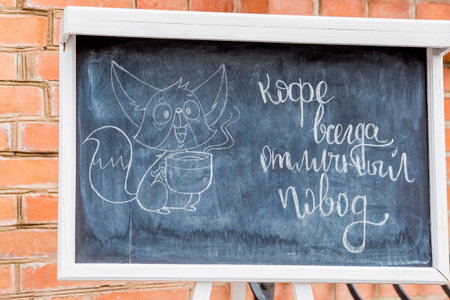 Кофе
всегда
отличный
повод